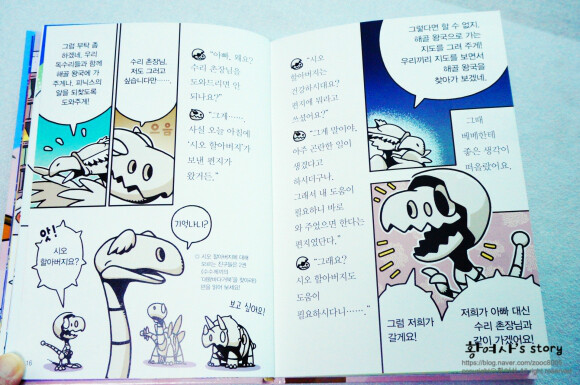 그럼 부탁 좀
하겠네. 우리
독수리들과 함께
해골 왕국에 가
주게나. 피닉스의
알을 되찾도록
도와주게!
수리 촌장님,
저도 그러고
싶습니다만…….
으음
"아빠, 왜요?
수리 촌장님을
도와드리면 안
되나요?"
"그게……,
사실 오늘 아침에
'시오 할아버지'가
보낸 편지가
왔거든."
앗!
시오
할아버지요?
기억나니?
보고 싶어요!
16
"시오
할아버지는
건강하시대요?
편지에 뭐라고
쓰셨어요?"
"그게 말이야,
아주 곤란한 일이
생겼다고
하시더구나.
그래서 내 도움이
필요하니 바로
와 주었으면 한다는
편지였단다."
"그래요?
시오 할아버지도
도움이
필요하시다니……."
그렇다면 할 수 없지.
해골 왕국으로 가는
지도를 그려 주게!
우리끼리 지도를 보면서
해골 왕국을
찾아가 보겠네.
그때
베베한테
좋은 생각이
떠올랐어요.
저희가 아빠 대신
수리 촌장님과
같이 가겠어요!
그럼 저희가
갈게요!
황여사's story